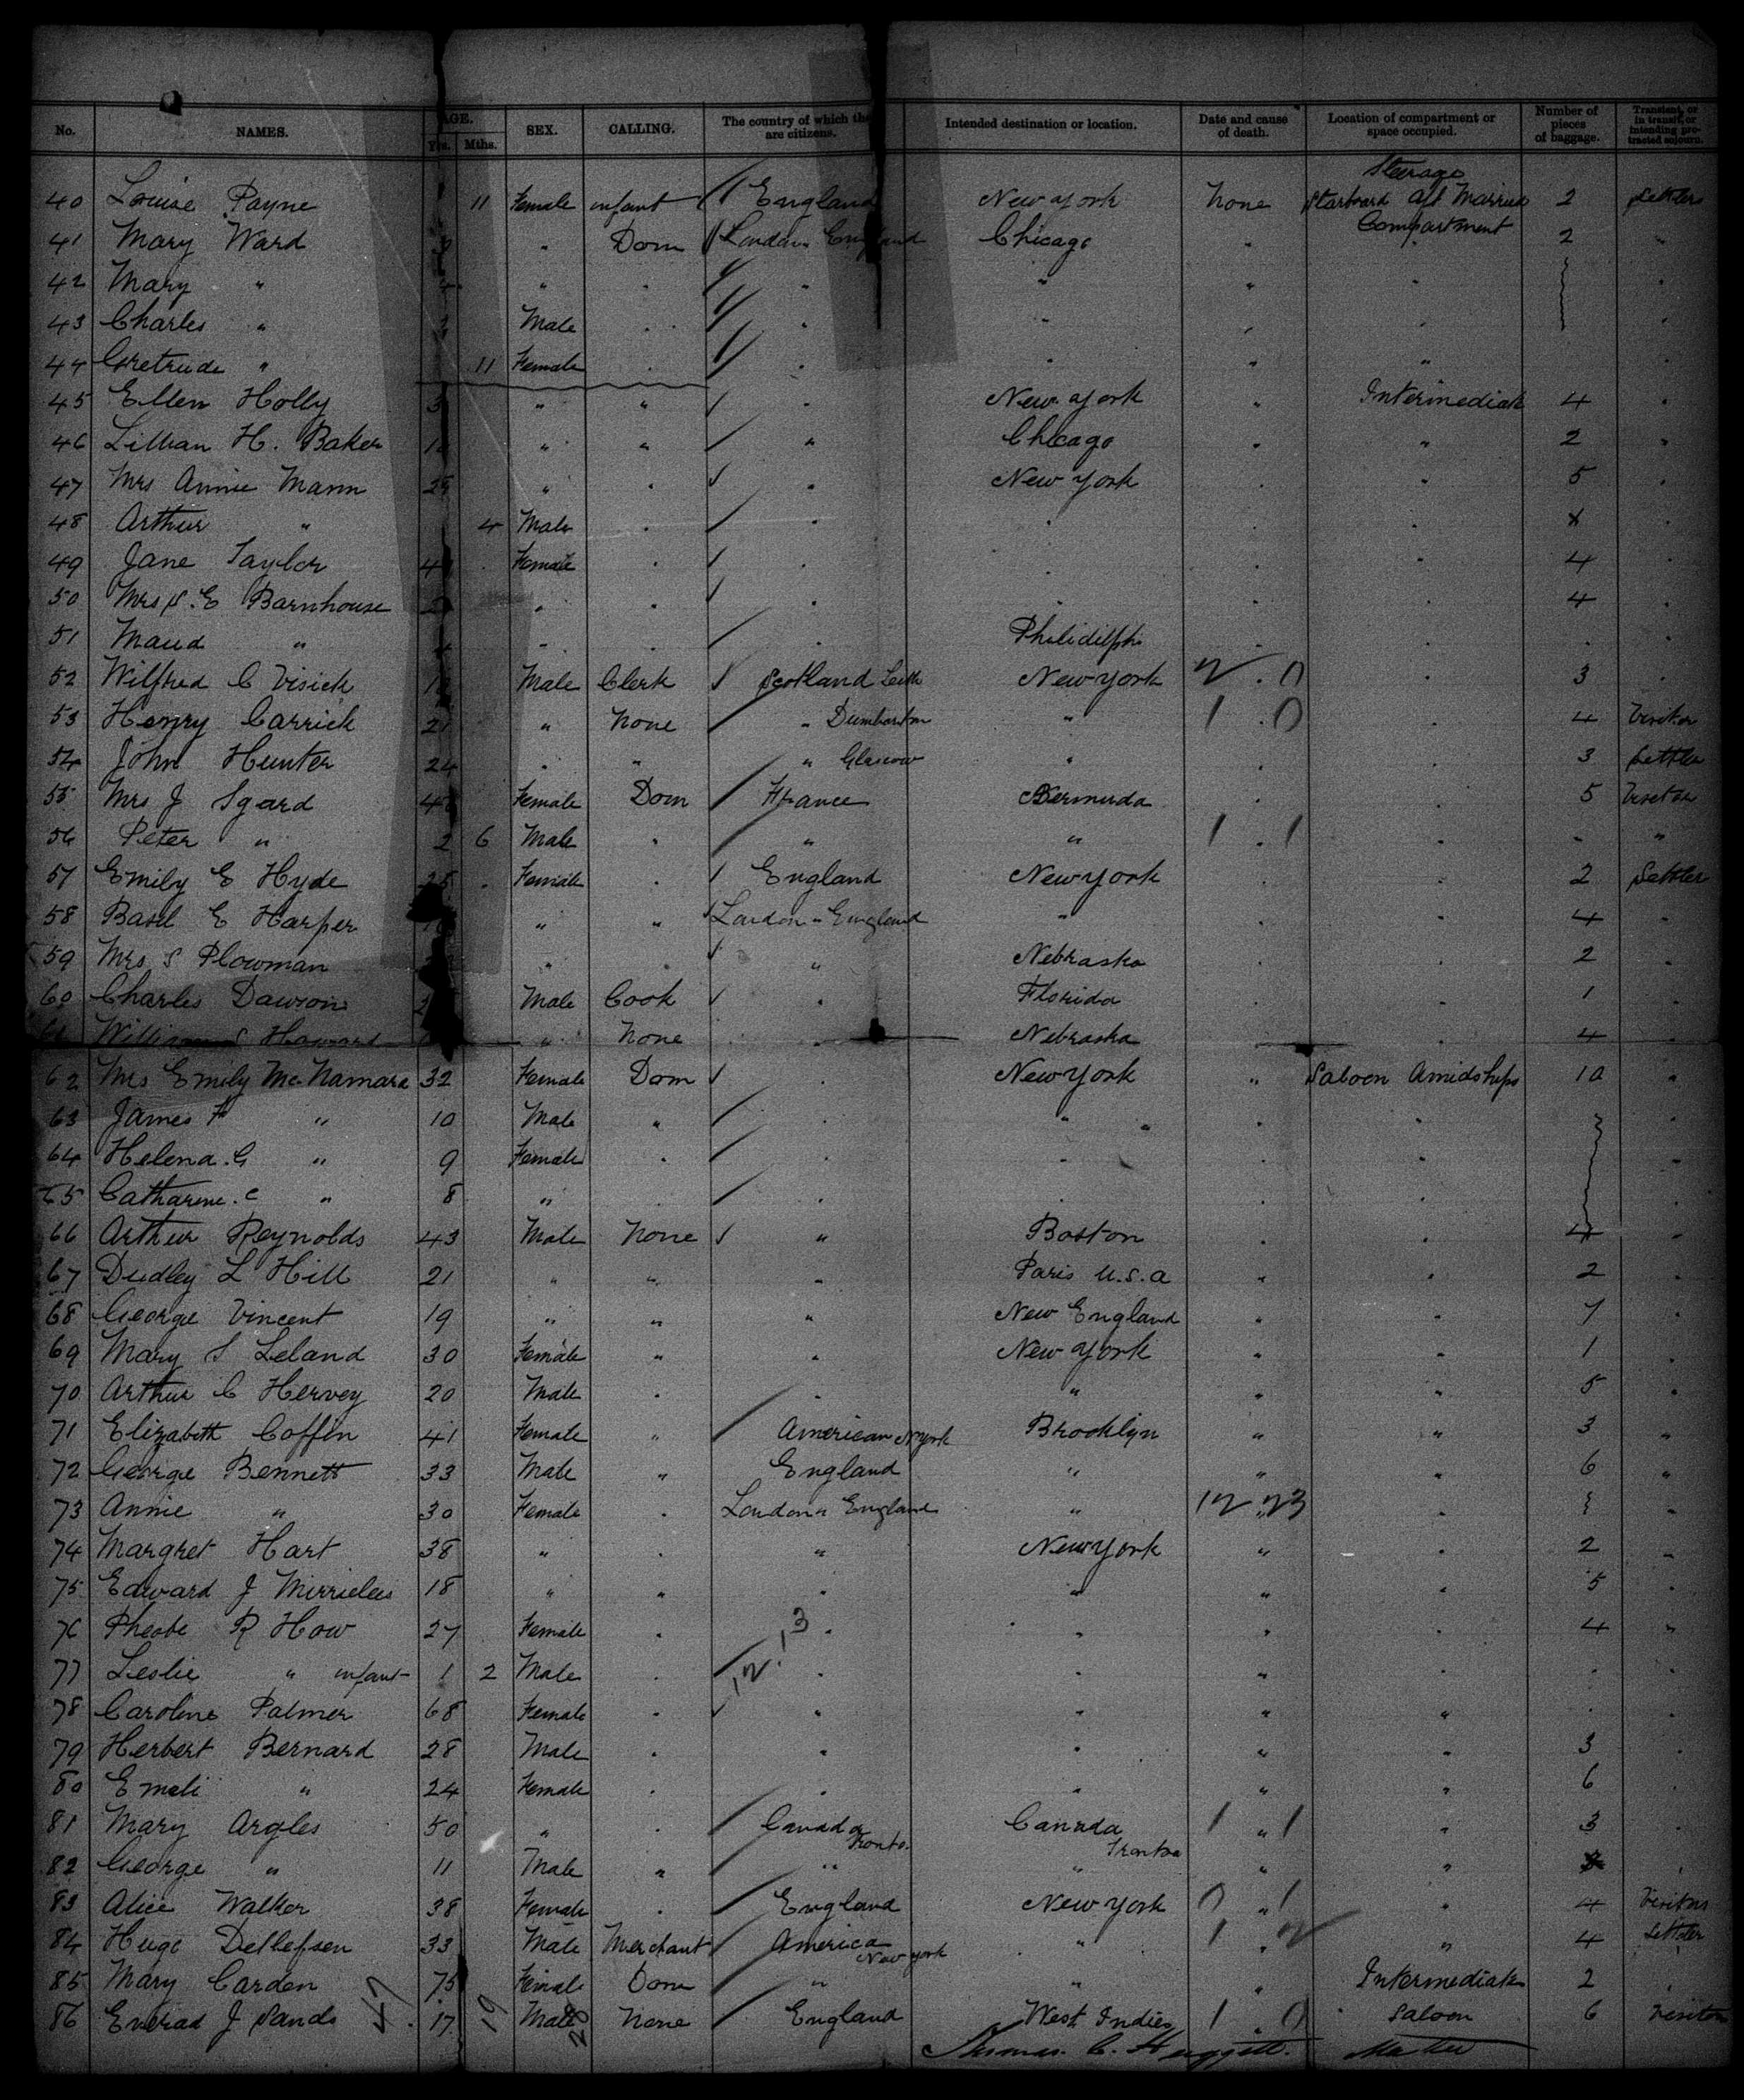 No. NAMES. AGE. Yrs. Mths. SEX. CALLING. The country of which the are citizens. Intended destination or location. Date and cause of death. Location of compartment or space occupied. Number of pieces of baggage. Transient, or in transit, or intending protracted sojourn.
Steerage
40 Louise Payne 11 Female infant England New York None Starboard Aft Married 2 Settler
Compartment
41 Mary Ward " Dom London England Chicago " 2 "
42 Mary " 4 " " " " " " "
43 Charles " Male " " " " " "
44 Gretrude " 11 Female " " " " " "
45 Ellen Holly " " " New York " Intermediate 4 "
46 Lillian H. Baker " " " Chicago " " 2 "
47 Mrs Annie Mann 25 " " " New York " " 5 "
48 Arthur " 4 Male " " " " x "
49 Jane Taylor Female " " " " 4 "
50 Mrs S. E Barnhouse " " " " " 4 "
51 Maud " 4 " " " Philidilphi " " " "
52 Wilfred C Visick Male Clerk Scotland Leith New York 2 . 0 " 3 "
53 Henry Carrick 21 " None " Dumbarton " 1 . 0 " 4 Visitor
54 John Hunter 24 " " " Glasgow " " " 3 Settler
55 Mrs J Sgard Female Dom France Bermuda " " 5 Visitor
56 Peter " 2 6 Male " " " 1 . 1 " " "
57 Emily E Hyde 25 Female " England New York " " 2 Settler
58 Basil E Harper " " London " England " " " 4 "
59 Mrs S Plowman " " " Nebraska " " 2 "
60 Charles Dawson Male Cook " Florida " " 1 "
61 William S Howard " None " Nebraska " 4 "
62 Mrs Emily McNamara 32 Female Dom " New York " Saloon Amidships 10 "
63 James F " 10 Male " " " " "
64 Helena. G " 9 Female " " " " "
65 Catharine. C " 8 " " " " " " "
66 Arthur Reynolds 43 Male None " Boston " " 4 "
67 Dudley L Hill 21 " " " Paris U.S.A " " 2 "
68 George Vincent 19 " " " New England " " 7 "
69 Mary S Leland 30 Female " " New York " " 1 "
70 Arthur C Hervey 20 Male " " " " " 5 "
71 Elizabeth Coffin 41 Female " American N York Brooklyn " " 3 "
72 George Bennett 33 Male " England " " " 6 "
73 Annie " 30 Female " London " England " 12 " 23 " "
74 Margret Hart 38 " " " New York " " 2 "
75 Edward J Mirrielees 18 " " " " " " 5 "
76 Pheobe R How 27 Female " " " " " 4 "
77 Leslie " infant 1 2 Male " 12.13 " " " " " "
78 Caroline Palmer 68 Female " " " " " " "
79 Herbert Bernard 28 Male " " " " " 3 "
80 Emeli " 24 Female " " " " " 6 "
81 Mary Argles 50 " " Canada Canada 1 " 1 " 3 "
Tronto. Trontoa
82 George " 11 Male " " " " " "
83 Alice Walker 38 Female " England New York 0 " 1 " 4 Visitors
84 Hugo Detlefsen 33 Male Merchant America " 1 . 2 " 4 Settler
New York
85 Mary Carden 75 Female Dom " " " Intermediate 2 "
86 Everad J Sands 17 Male None England West Indies 1 . 0 Saloon 6 Visitor
47 19 28
Thomas. C. Huggett. Master